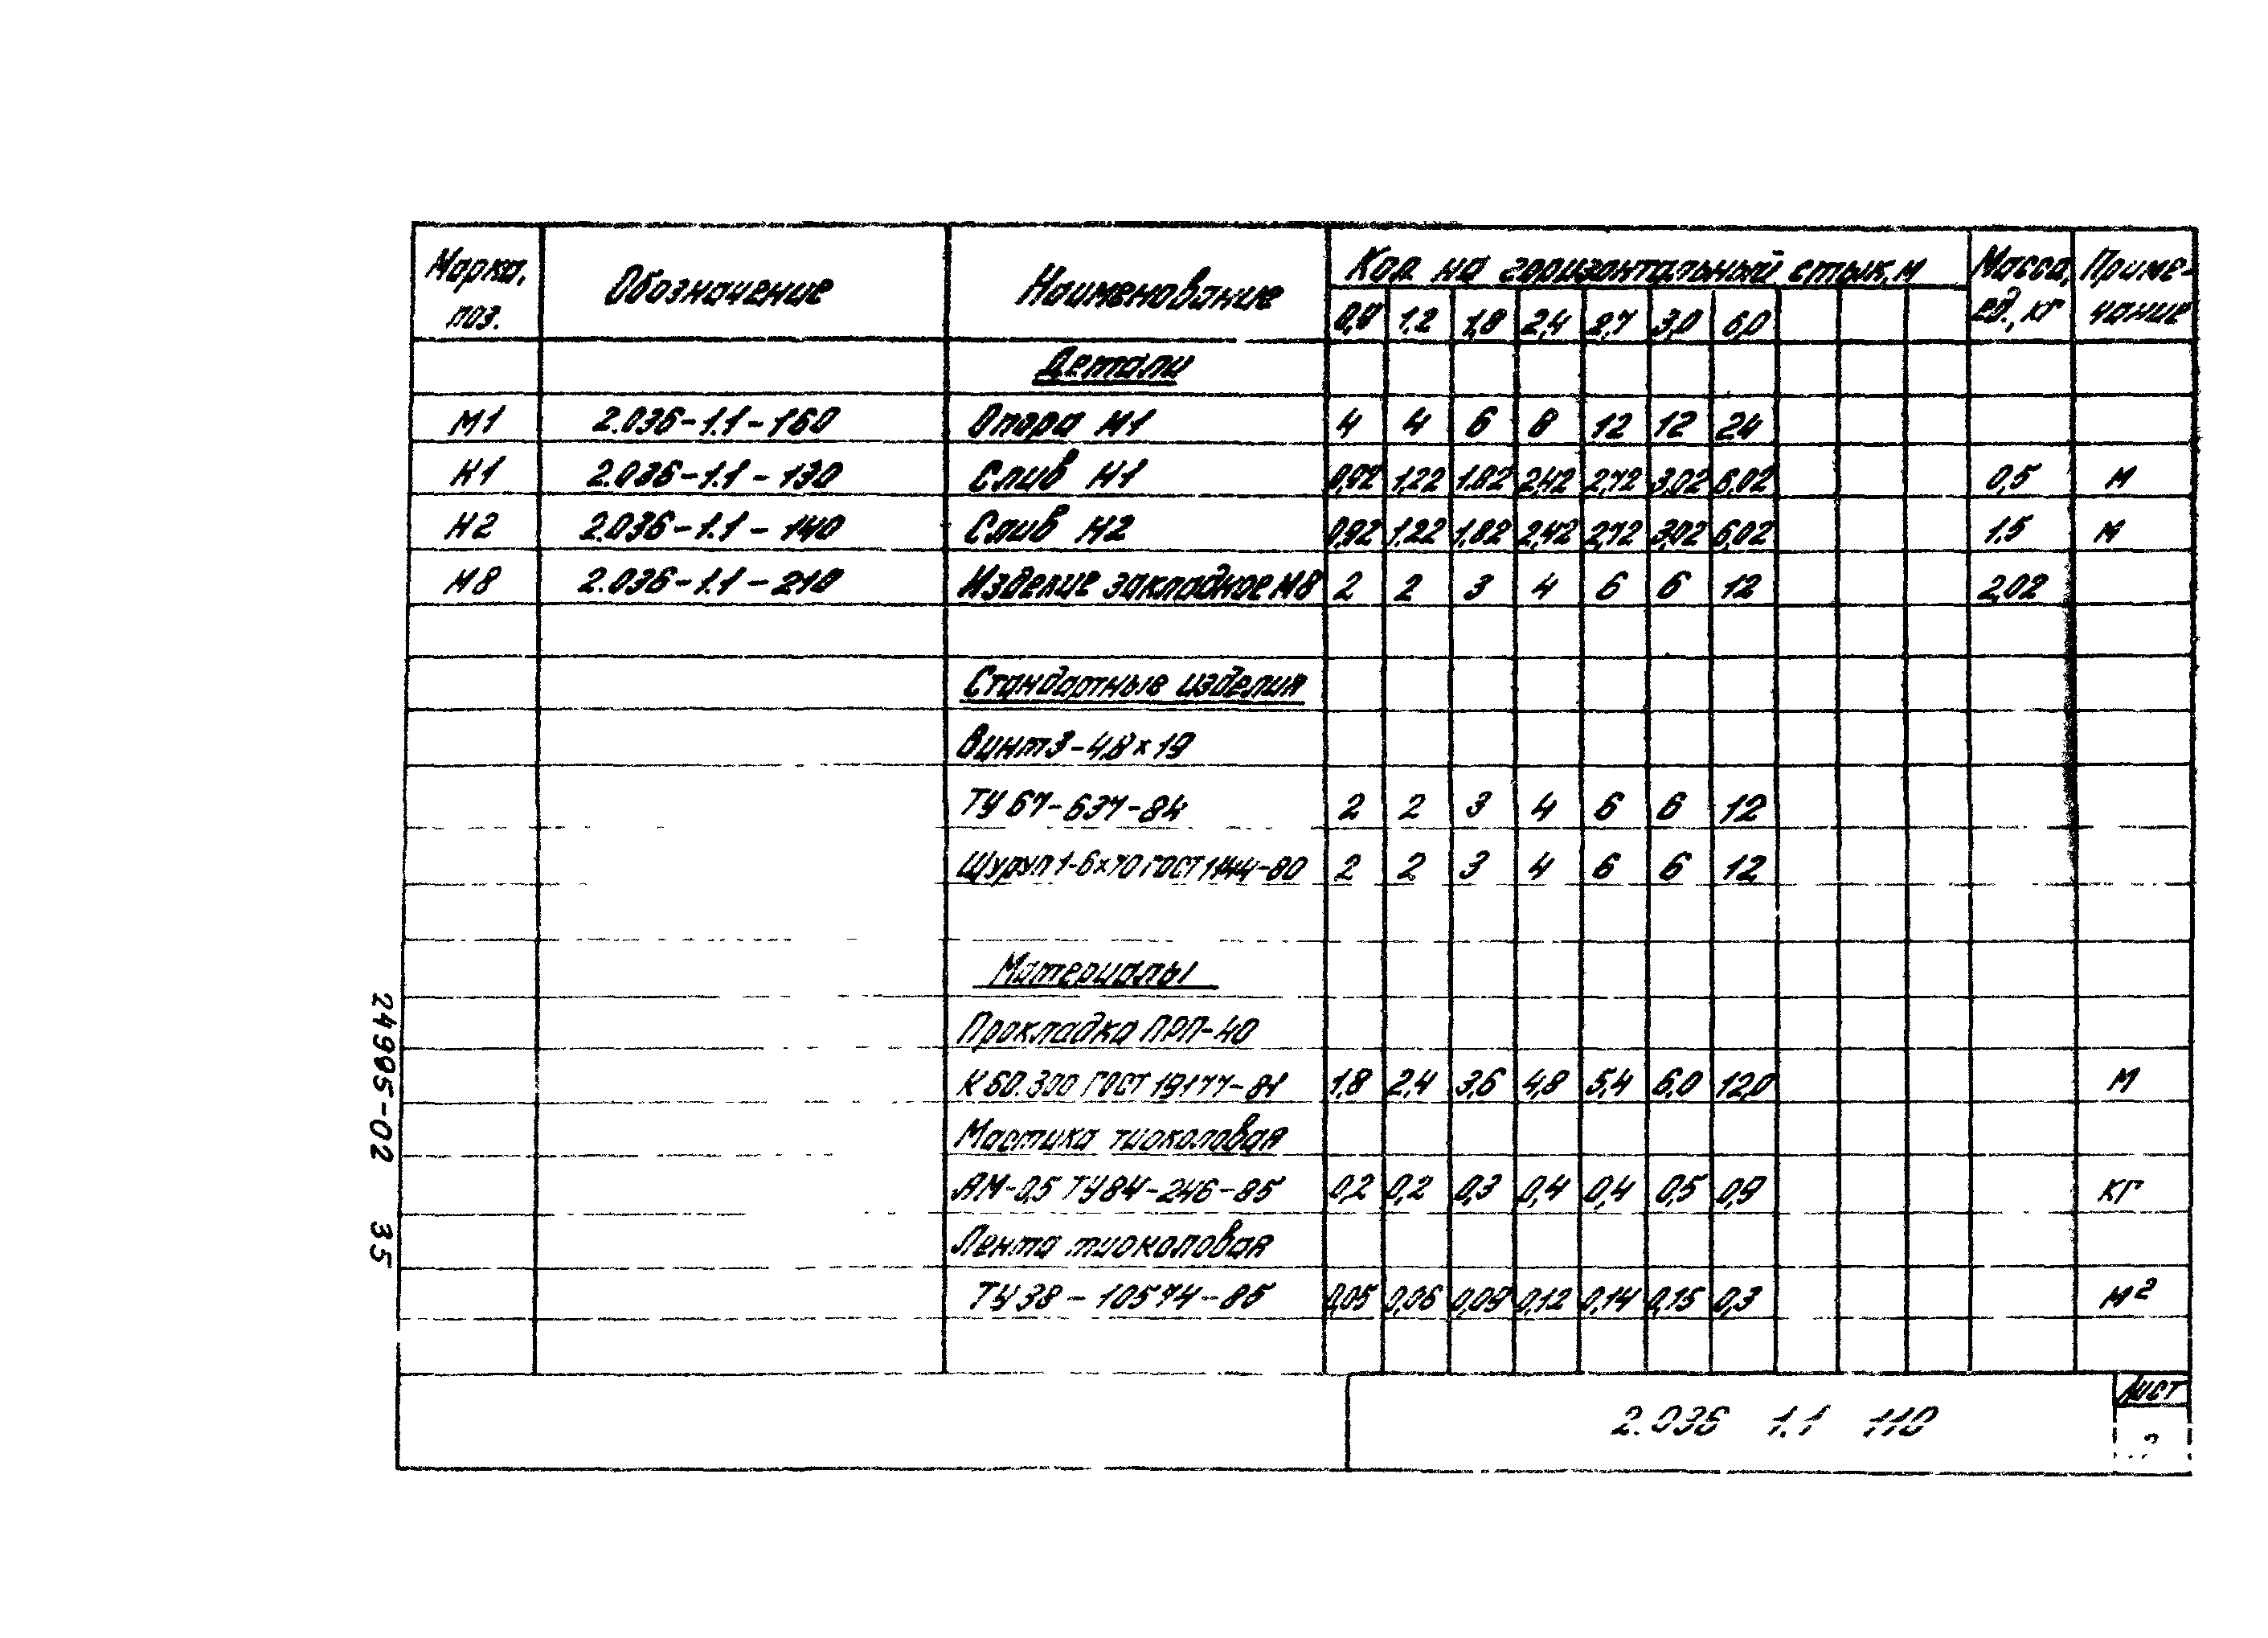 Марка, поз. Обозначение Наименование Кол. на горизонтальный стык, м Масса, ед., кг Приме-чание
0,9 1,2 1,8 2,4 2,7 3,0 6,0
Детали
М1 2.036-1.1-160 Опора М1 4 4 6 8 12 12 24
Н1 2.036-1.1-130 Слив Н1 0,92 1,22 1,82 2,42 2,72 3,02 6,02 0,5 м
Н2 2.036-1.1-140 Слив Н2 0,92 1,22 1,82 2,42 2,72 3,02 6,02 1,5 м
М8 2.036-1.1-210 Изделие закладное М8 2 2 3 4 6 6 12 2,02
Стандартные изделия
Винт 3-4,8×19
ТУ 67-637-84 2 2 3 4 6 6 12
Шуруп 1-6×70 ГОСТ 1144-80 2 2 3 4 6 6 12
Материалы
Прокладка ПРП-40
К 60.300 ГОСТ 19177-81 1,8 2,4 3,6 4,8 5,4 6,0 12,0 м
Мастика тиоколовая
АМ-0,5 ТУ 84-246-85 0,2 0,2 0,3 0,4 0,4 0,5 0,9 кг
Лента тиоколовая
ТУ 38-10574-85 0,05 0,06 0,09 0,12 0,14 0,15 0,3 м²
2.036 1.1 110
Лист
24995-02 35